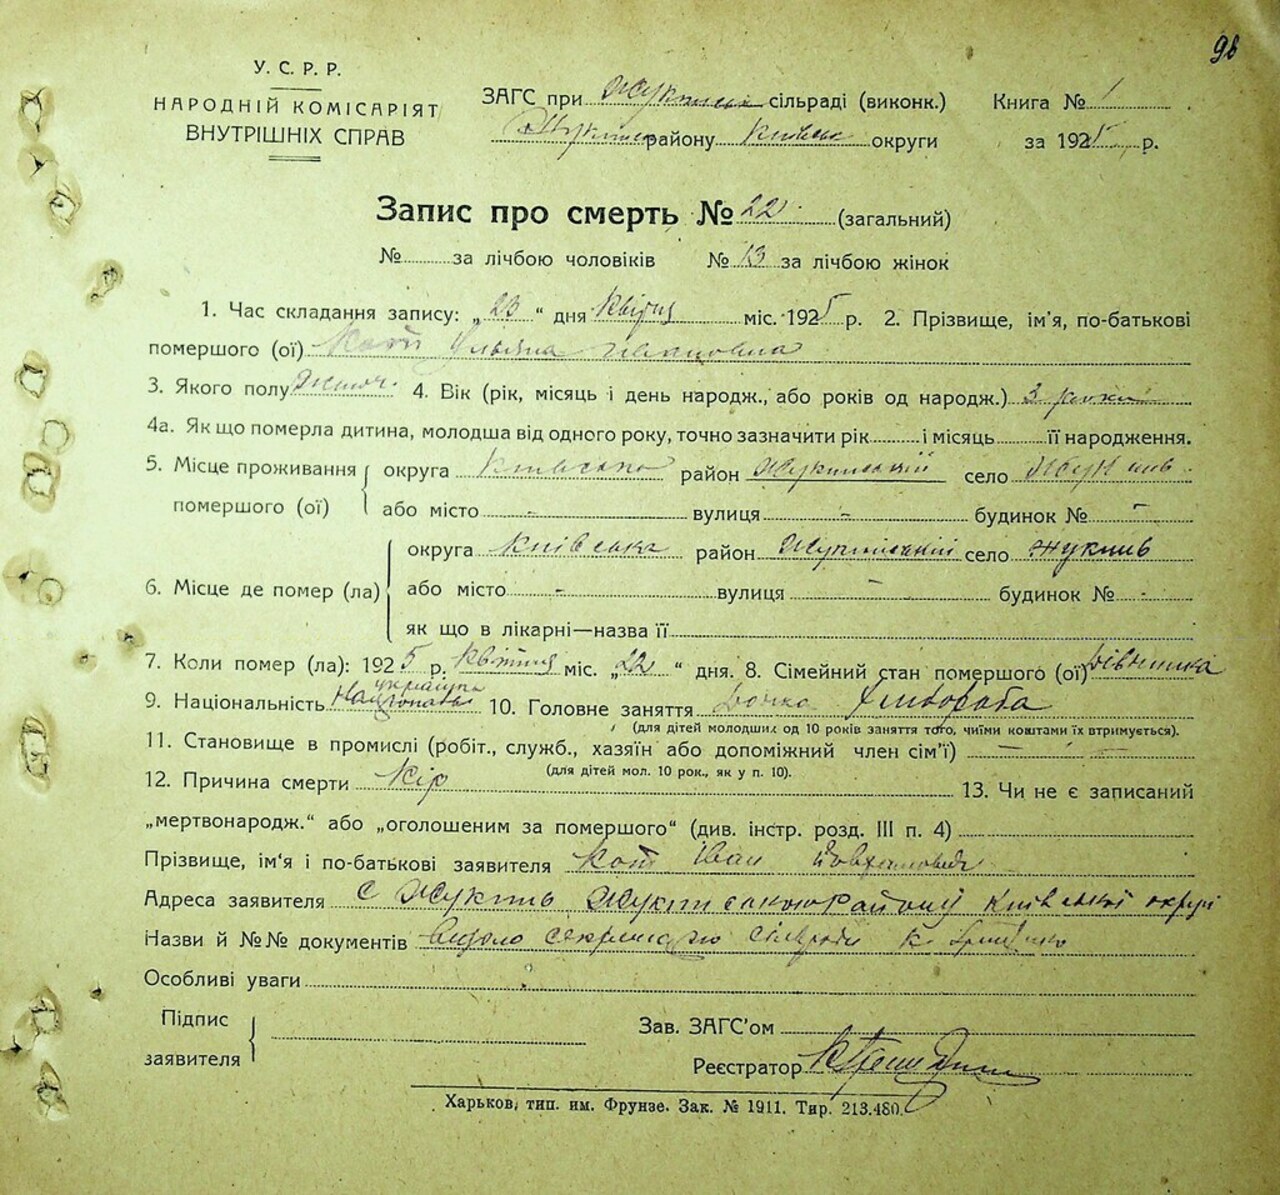 98
У. С. Р. Р.
НАРОДНІЙ КОМІСАРІЯТ
ВНУТРІШНІХ СПРАВ
ЗАГС при сільраді (виконк.) Книга № 1
району округи за 1925 р.
Запис про смерть № 22 (загальний)
№ за лічбою чоловіків № 13 за лічбою жінок
1. Час складання запису: „23“ дня Квітня міс. 1925 р. 2. Прізвище, ім'я, по-батькові
помершого (ої) Уляна Івановна
3. Якого полу жіноч. 4. Вік (рік, місяць і день народж., або років од народж.) 3 роки
4а. Як що померла дитина, молодша від одного року, точно зазначити рік і місяць її народження.
5. Місце проживання округа Київська район Жукинський село Жукинь
помершого (ої) або місто - вулиця - будинок № -
округа Київська район Жукинський село Жукинь
6. Місце де помер (ла) або місто - вулиця - будинок № -
як що в лікарні—назва її
7. Коли помер (ла): 1925 р. Квітня міс. „22“ дня. 8. Сімейний стан помершого (ої) Дівчинка
9. Національність українка 10. Головне заняття Дочка Хлібороба
(для дітей молодших од 10 років заняття того, чиїми коштами їх втримується).
11. Становище в промислі (робіт., служб., хазяїн або допоміжний член сім'ї)
(для дітей мол. 10 рок., як у п. 10).
12. Причина смерти Кір 13. Чи не є записаний
„мертвонародж.“ або „оголошеним за помершого“ (див. інстр. розд. III п. 4)
Прізвище, ім'я і по-батькові заявителя Кот Іван
Адреса заявителя с Жукинь Жукинського району Київської округи
Назви й №№ документів Відомо секретарю сільради К.
Особливі уваги
Підпис
заявителя
Зав. ЗАГС'ом
Реєстратор
Харьков, тип. им. Фрунзе. Зак. № 1911. Тир. 213.480.